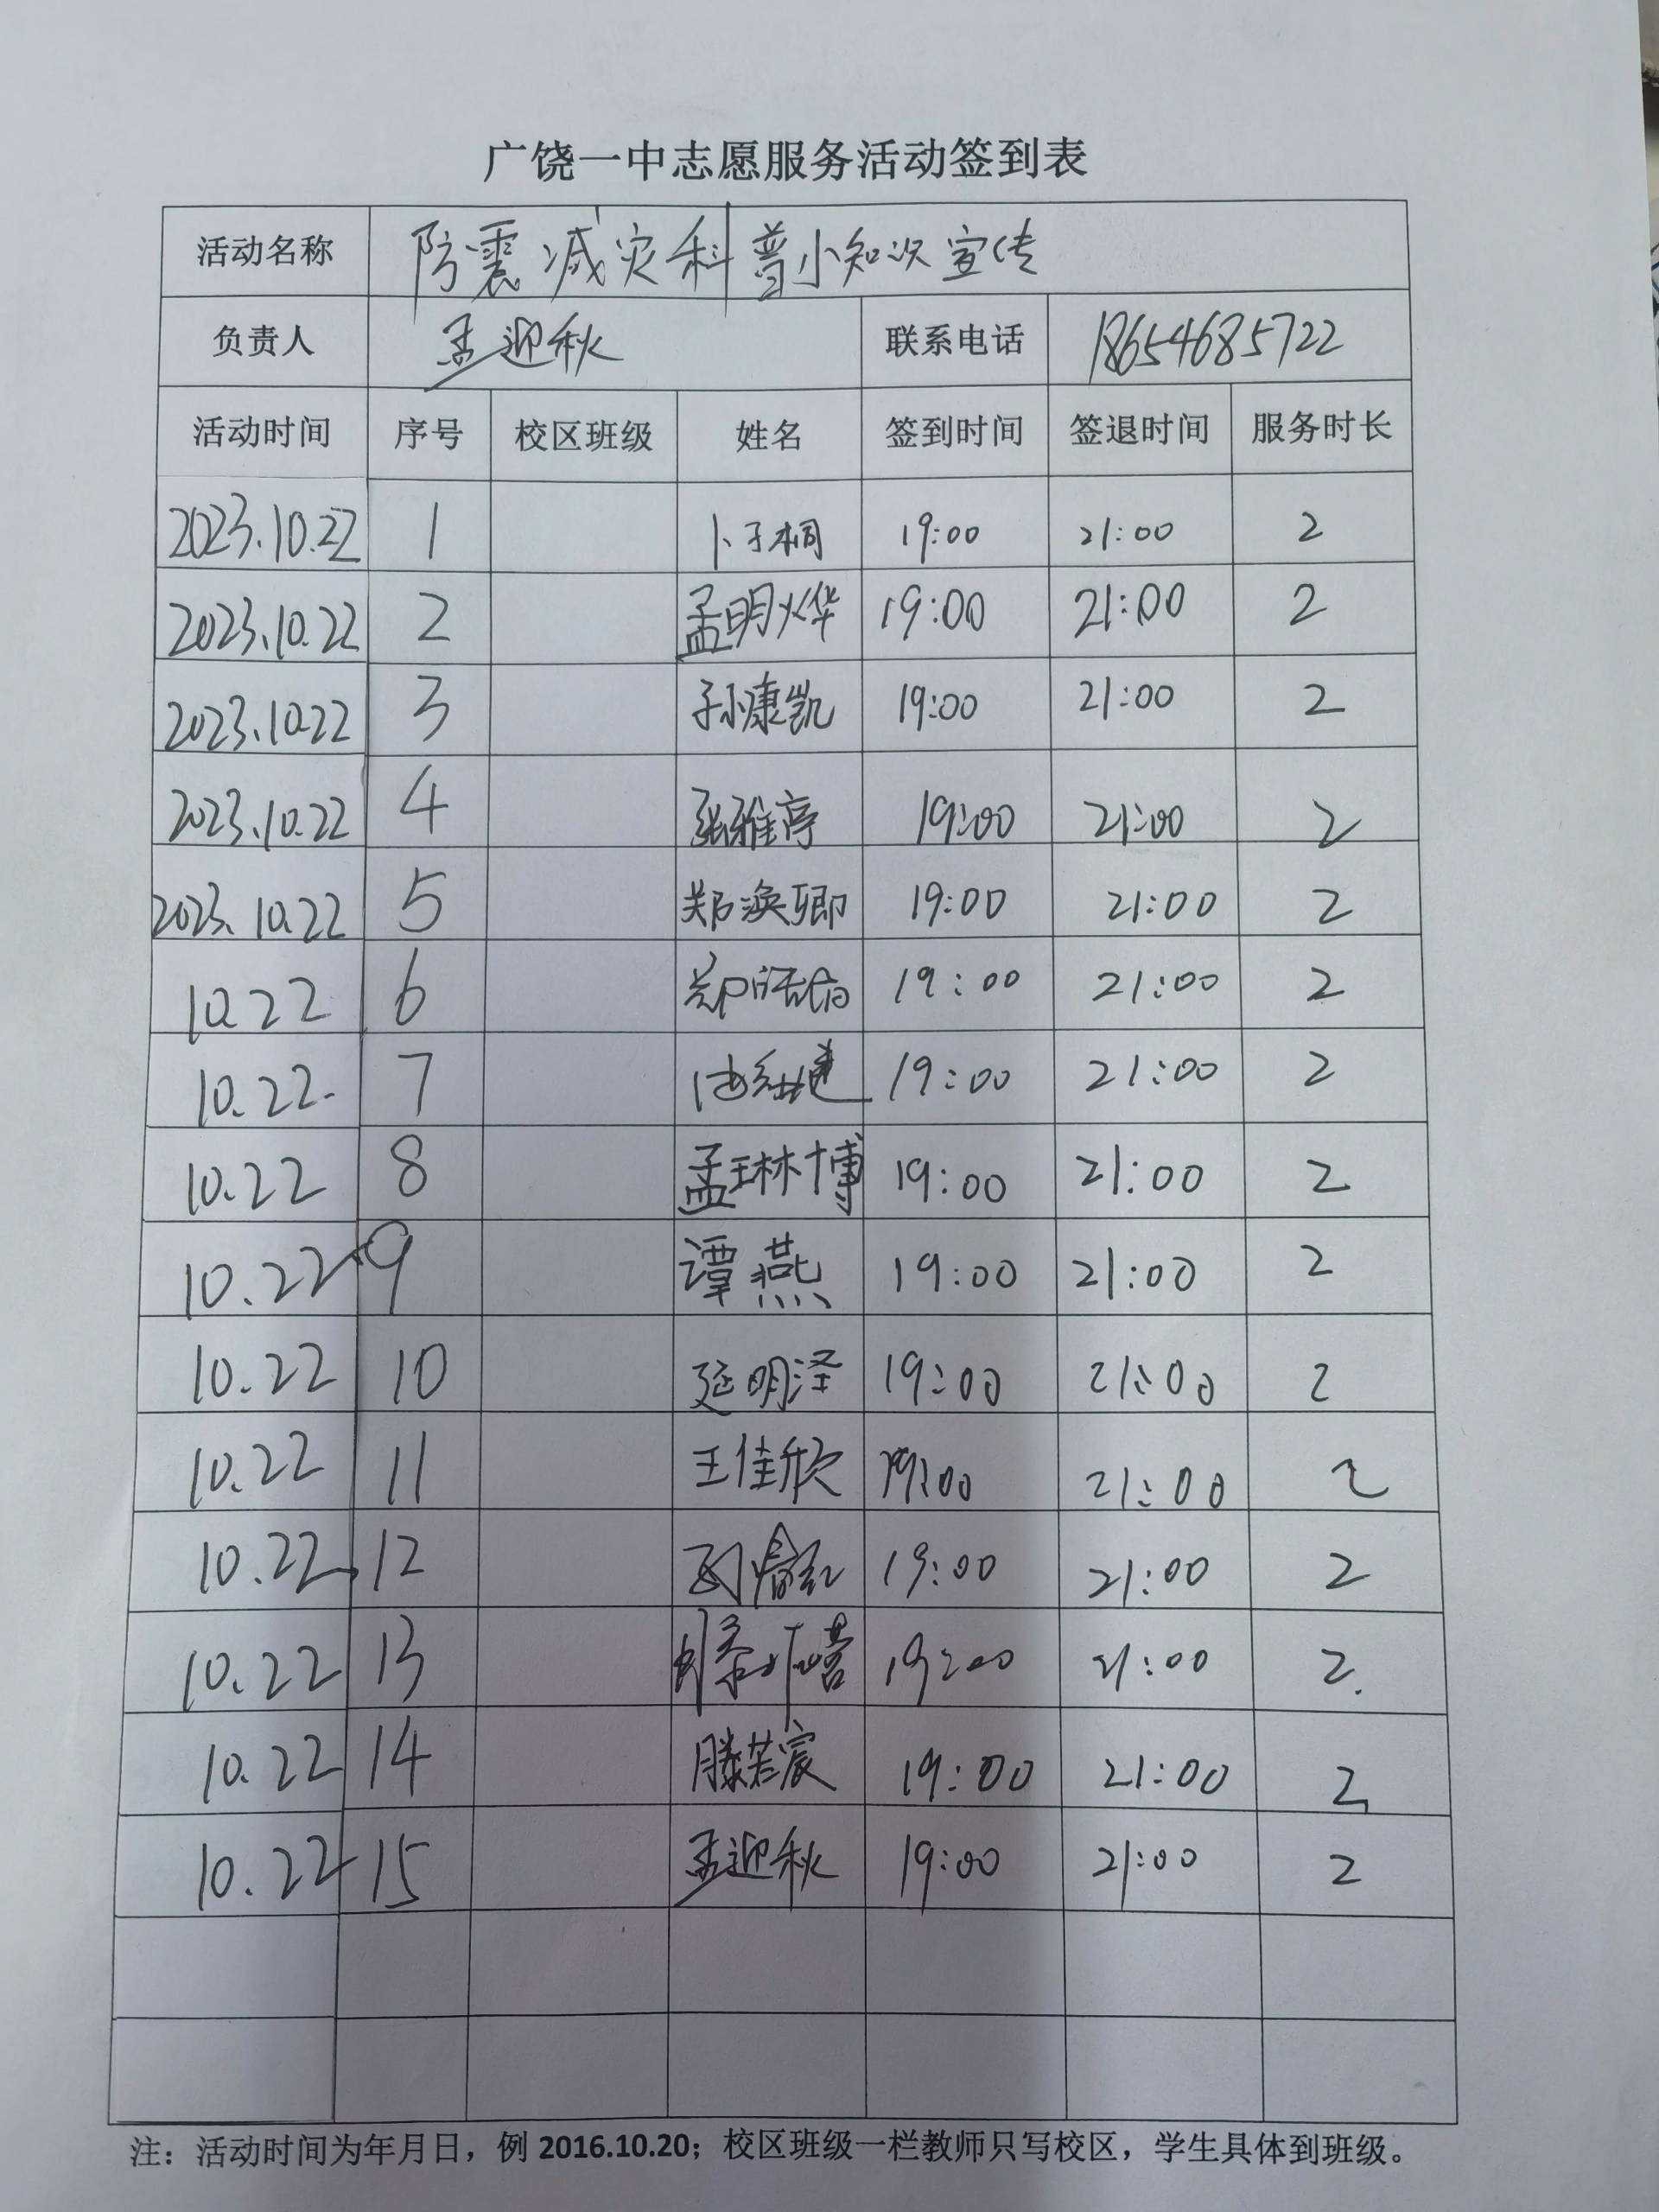 广饶一中志愿服务活动签到表
活动名称 防震减灾科普小知识宣传
负责人 孟迎秋 联系电话 18654685722
活动时间 序号 校区班级 姓名 签到时间 签退时间 服务时长
2023.10.22 1 卜子桐 19:00 21:00 2
2023.10.22 2 孟明烨 19:00 21:00 2
2023.10.22 3 孙康凯 19:00 21:00 2
2023.10.22 4 张雅亭 19:00 21:00 2
2023.10.22 5 郑涣卿 19:00 21:00 2
10.22 6 19:00 21:00 2
10.22. 7 19:00 21:00 2
10.22 8 孟琳博 19:00 21:00 2
10.22 9 谭燕 19:00 21:00 2
10.22 10 延明泽 19:00 21:00 2
10.22 11 王佳欣 19:00 21:00 2
10.22 12 19:00 21:00 2
10.22 13 19:00 21:00 2.
10.22 14 滕若宸 19:00 21:00 2
10.22 15 孟迎秋 19:00 21:00 2
注：活动时间为年月日，例 2016.10.20；校区班级一栏教师只写校区，学生具体到班级。